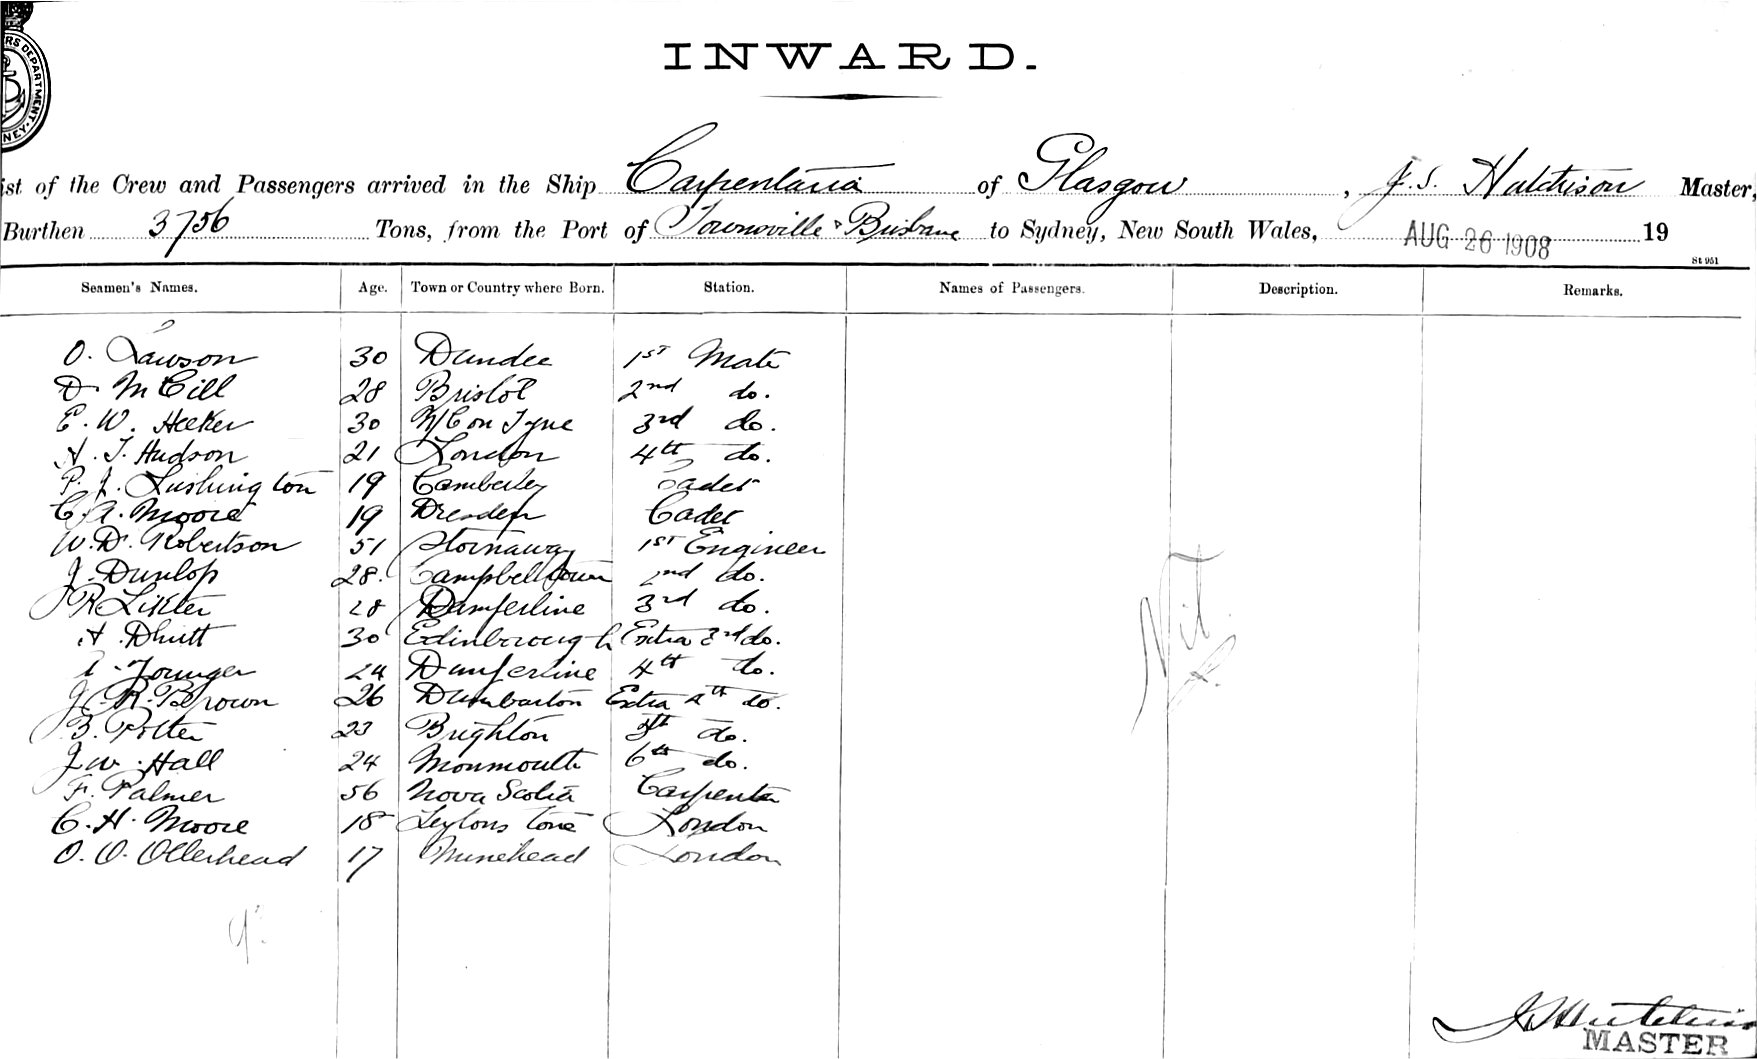 RS DEPARTMENT.
NEY.
INWARD.
ist of the Crew and Passengers arrived in the Ship Carpentaria of Glasgow, J. S. Hutchison Master,
Burthen 3756 Tons, from the Port of Townsville & Brisbane to Sydney, New South Wales, AUG 26 1908 19
St 951
Seamen's Names. Age. Town or Country where Born. Station. Names of Passengers. Description. Remarks.
O. Lawson 30 Dundee 1st Mate
D. McGill 28 Bristol 2nd do.
E. W. Heeker 30 N/C on Tyne 3rd do.
H. T. Hudson 21 London 4th do.
P. J. Lushington 19 Camberley Cadet
C. A. Moore 19 Dresden Cadet
W. D. Robertson 51 Stornaway 1st Engineer
J. Dunlop 28. Campbelltown 2nd do.
R 28 Damferline 3rd do.
A. 30 Edinborough Extra 3rd do.
Younger 24 Dunferline 4th do.
J. R. Brown 26 Dumbarton Extra 4th do.
B. Potter 23 Brighton 5th do.
J. W. Hall 24 Monmouth 6th do.
F. Palmer 56 Nova Scotia Carpenter
C. H. Moore 18 Leytonstone London
O. O. Ollerhead 17 Minehead London
Nil
J S Hutchison
MASTER